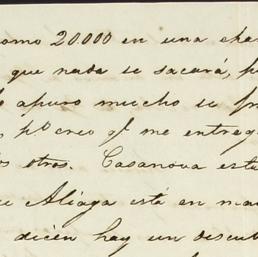 como 20.000 en una
que nada se sacará,
apuro mucho se
pº creo qᵉ me entreg
otros. Casanova est
Aliaga está en ma
dicen hay un descu